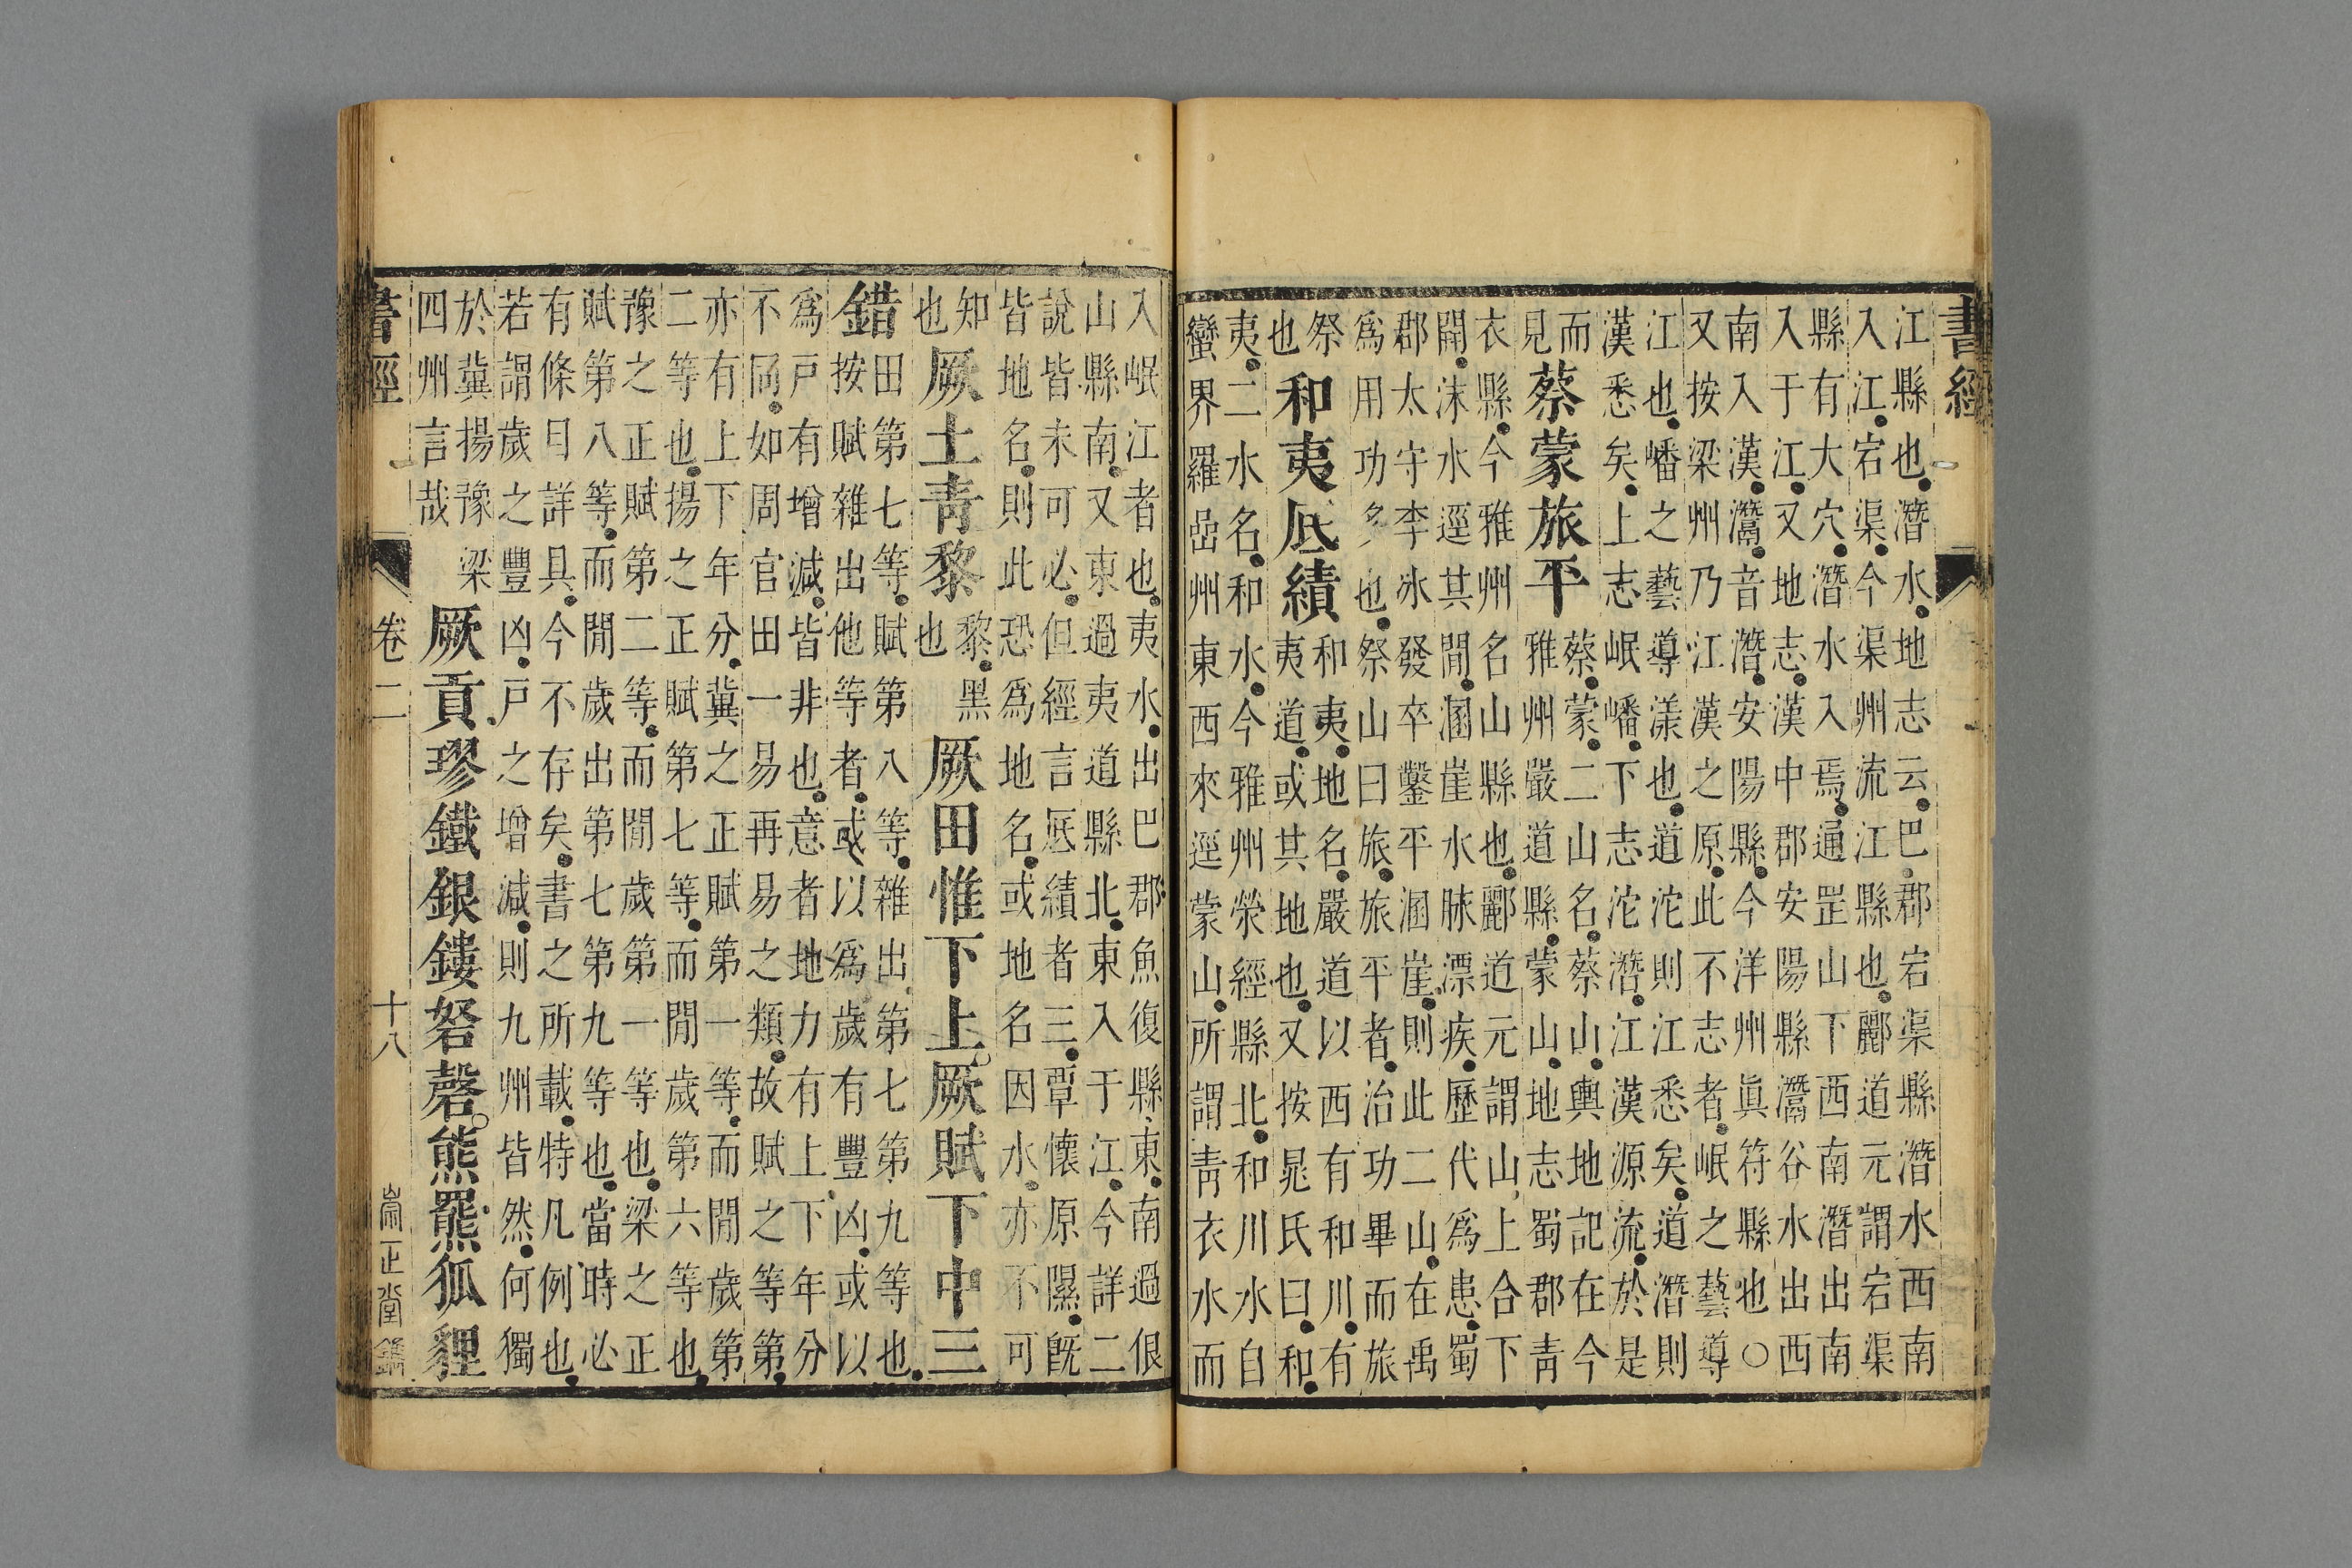 書經
江縣也潛水地志云巴郡宕渠縣潛水西南
入江宕渠今渠州流江縣也酈道元謂宕渠
縣有大穴潛水入焉通罡山下西南潛出南
入于江又地志漢中郡安陽縣灊谷水出西
南入漢灊音潛安陽縣今洋州眞符縣也○
又按梁州乃江漢之原此不志者岷之藝導
江也嶓之藝導漾也道沱則江悉矣道潛則
漢悉矣上志岷嶓下志沱潛江漢源流於是
而見
蔡蒙旅平
蔡蒙二山名蔡山輿地記在今
雅州嚴道縣蒙山地志蜀郡青
衣縣今雅州名山縣也酈道元謂山上合下
開沫水逕其閒溷崖水脉漂疾歷代爲患蜀
郡太守李冰發卒鑿平溷崖則此二山在禹
爲用功多也祭山曰旅旅平者治功畢而旅
祭也
和夷厎績
和夷地名嚴道以西有和川有
夷道或其地也又按晁氏曰和
夷二水名和水今雅州滎經縣北和川水自
蠻界羅嵒州東西來逕蒙山所謂靑衣水而
入岷江者也夷水出巴郡魚復縣東南過佷
山縣南又東過夷道縣北東入于江今詳二
說皆未可必但經言厎績者三覃懷原隰旣
皆地名則此恐爲地名或地名因水亦不可
知也
厥土靑黎
黎黑也
厥田惟下上厥賦下中三
錯
田第七等賦第八等雜出第七第九等也
按賦雜出他等者或以爲歲有豐凶或以
爲戶有增減皆非也意者地力有上下年分
不同如周官田一易再易之類故賦之等第
亦有上下年分冀之正賦第一等而閒歲第
二等也揚之正賦第七等而閒歲第六等也
豫之正賦第二等而閒歲第一等也梁之正
賦第八等而閒歲出第七第九等也當時必
有條目詳具今不存矣書之所載特凡例也
若謂歲之豐凶戶之增減則九州皆然何獨
於冀揚豫梁
四州言哉
厥貢璆鐵銀鏤砮磬熊羆狐貍
書經 卷二 十八 崇正堂鐫